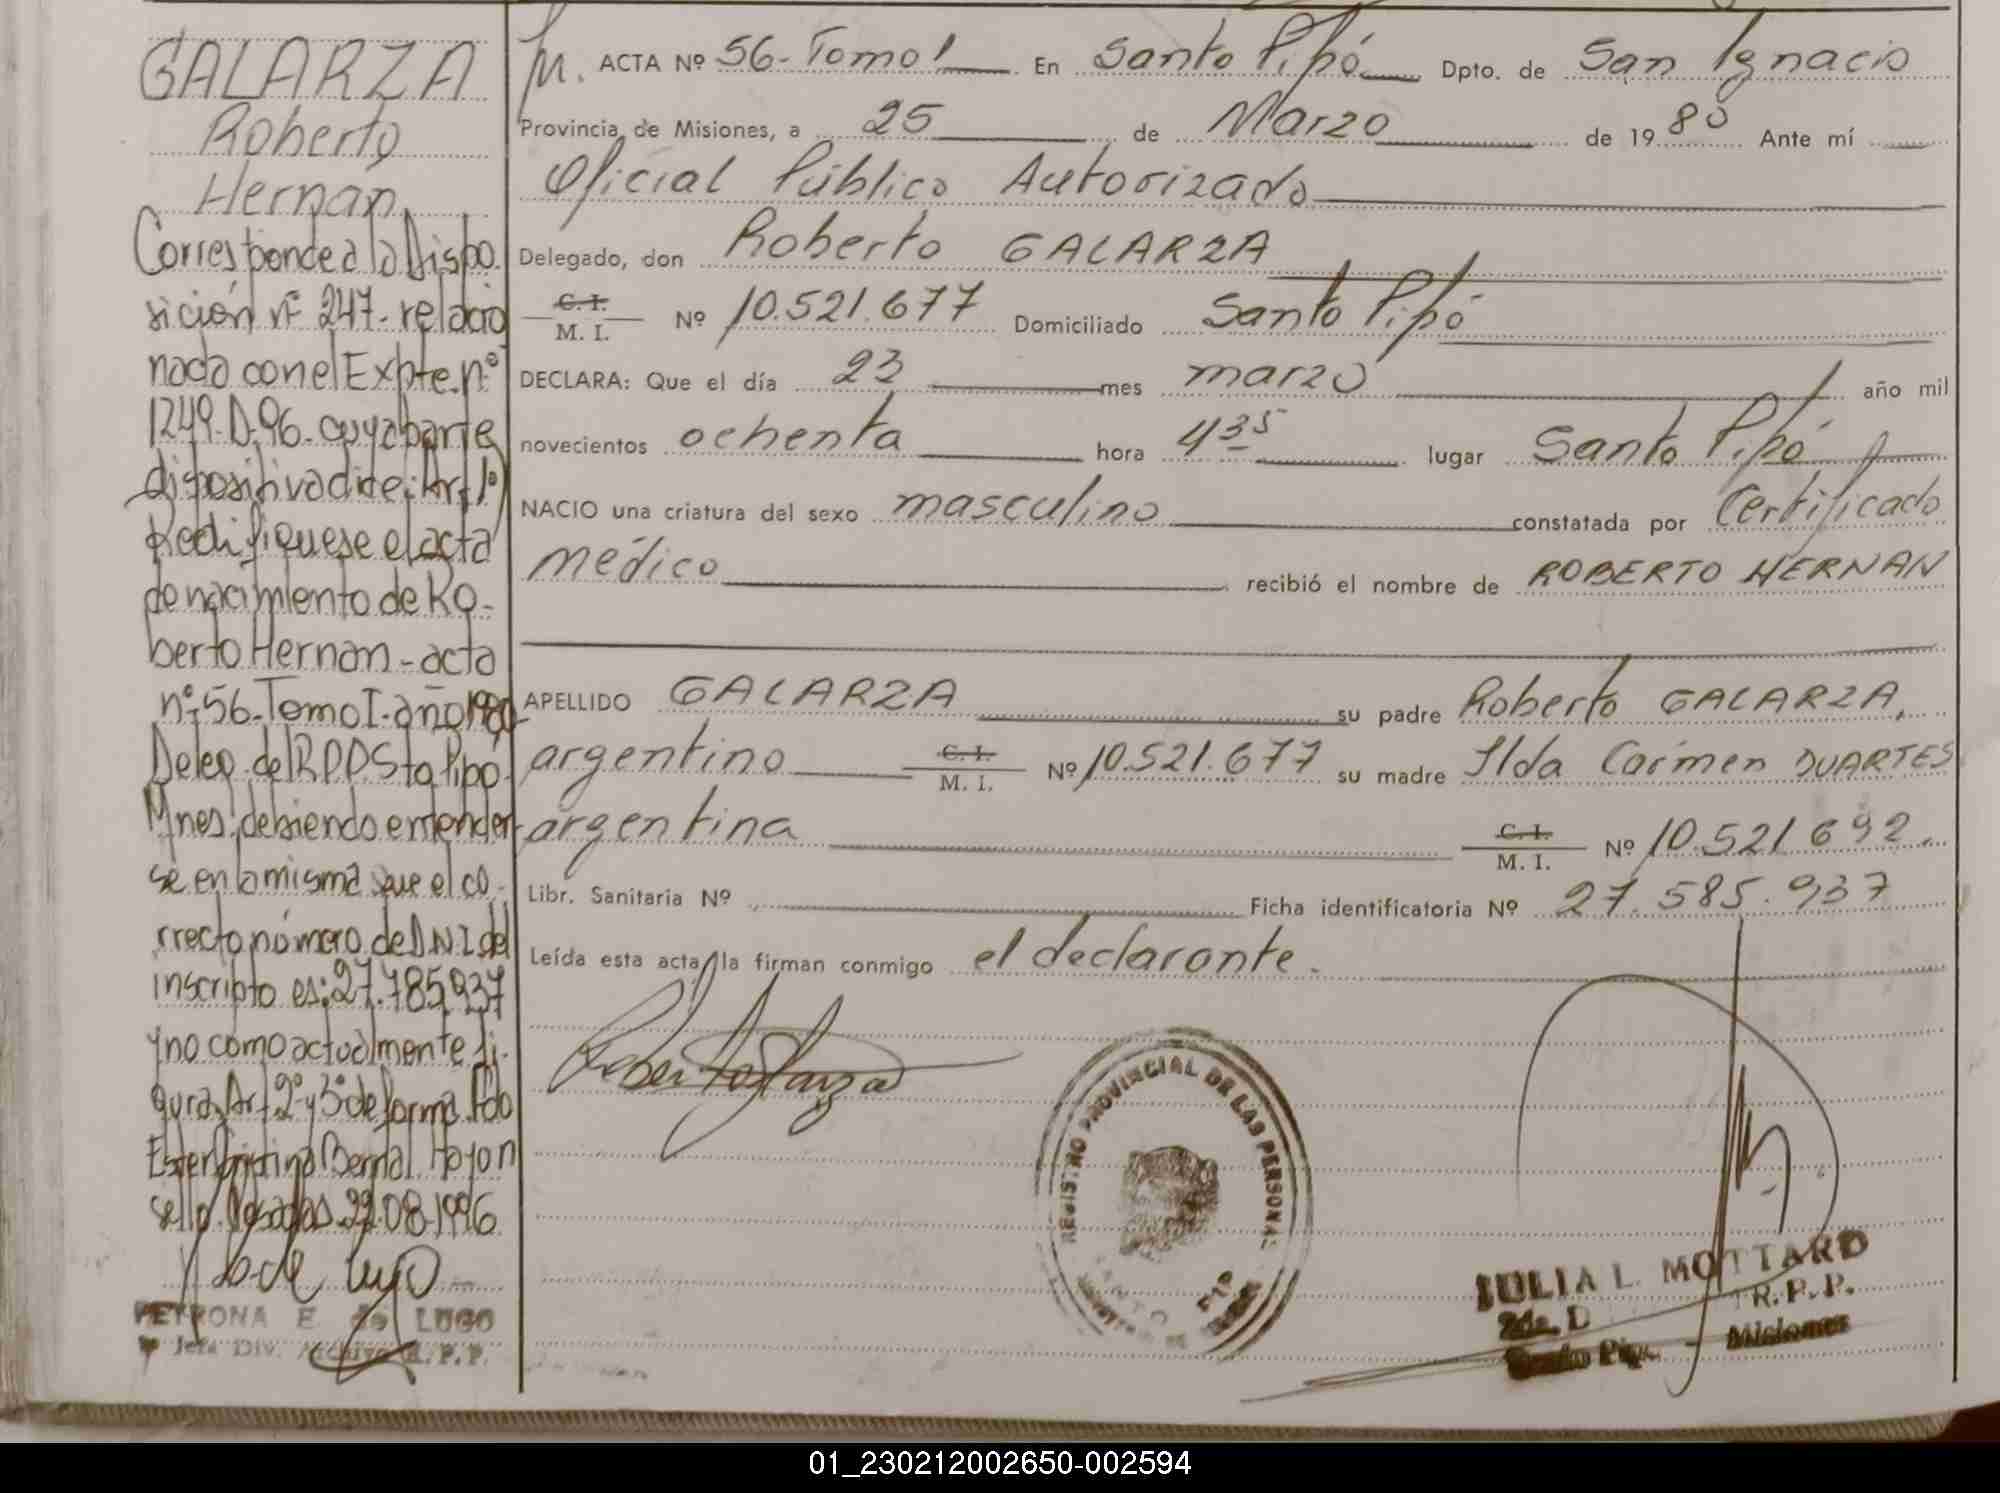 GALARZA
Roberto
Hernan
Corresponde a la Dispo.
sición nº 247- relacio
nada con el Expte. nº
1249.D.96. cuya parte
dispositiva dice: Art 1º)
Rectifiquese el acta
de nacimiento de Ro-
berto Hernan - acta
nº 56-Tomo I-año 1980
Deleg. del R.P.P. Sto Pipó.
Mnes, debiendo entender
se en la misma que el co-
rrecto número de D.N.I del
inscripto es: 27.785.937
y no como actualmente fi-
gura, Art 2º y 3º de forma. Fdo
Ester Cristina Bernal Hay un
sello. Posadas 22.08.1996
PETRONA E de LUGO
Jefa Div. Archivo R.P.P.
ACTA Nº 56-Tomo I En Santo Pipó Dpto. de San Ignacio
Provincia de Misiones, a 25 de Marzo de 1980 Ante mí
Oficial Público Autorizado
Delegado, don Roberto GALARZA
C.I. M. I. Nº 10.521.677 Domiciliado Santo Pipó
DECLARA: Que el día 23 mes marzo año mil
novecientos ochenta hora 4 35 lugar Santo Pipó
NACIO una criatura del sexo masculino constatada por Certificado
médico recibió el nombre de ROBERTO HERNAN
APELLIDO GALARZA su padre Roberto GALARZA,
argentino C.I. M. I. Nº 10.521.677 su madre Ilda Carmen DUARTES
argentina C.I. M. I. Nº 10.521.692.
Libr. Sanitaria Nº Ficha identificatoria Nº 27.585.937
Leída esta acta, la firman conmigo el declarante.
Roberto Galarza
REGISTRO PROVINCIAL DE LAS PERSONAS
JULIA L. MOTTARD
2da. D R.P.P.
Santo Pipó - Misiones
01_230212002650-002594